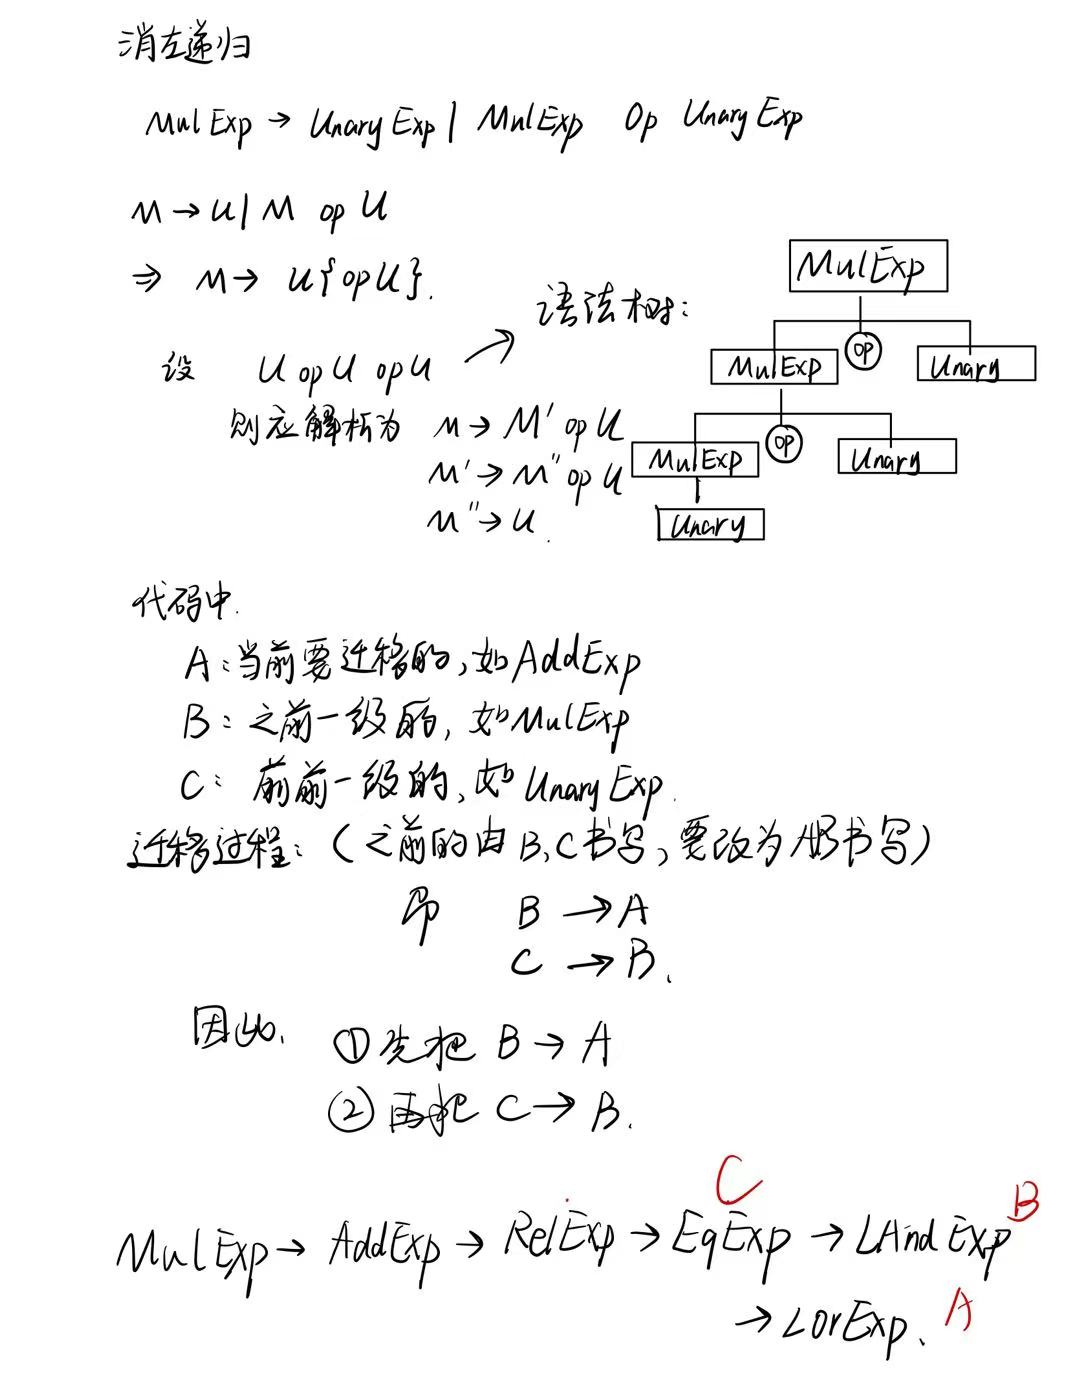 消左递归
MulExp → UnaryExp | MulExp Op UnaryExp
M → U | M op U
⇒ M → U{op U}.
设 U op U op U → 语法树:
则应解析为 M → M' op U
M' → M'' op U
M'' → U.
MulExp
MulExp op Unary
MulExp op Unary
Unary
代码中.
A:当前要迁移的,如AddExp
B:之前一级的,如MulExp
C:前前一级的,如UnaryExp.
迁移过程:(之前的由B,C书写,要改为AB书写)
即 B → A
C → B.
因此,
①先把 B → A
②再把 C → B.
C
B
MulExp → AddExp → RelExp → EqExp → LAndExp
→ LorExp. A